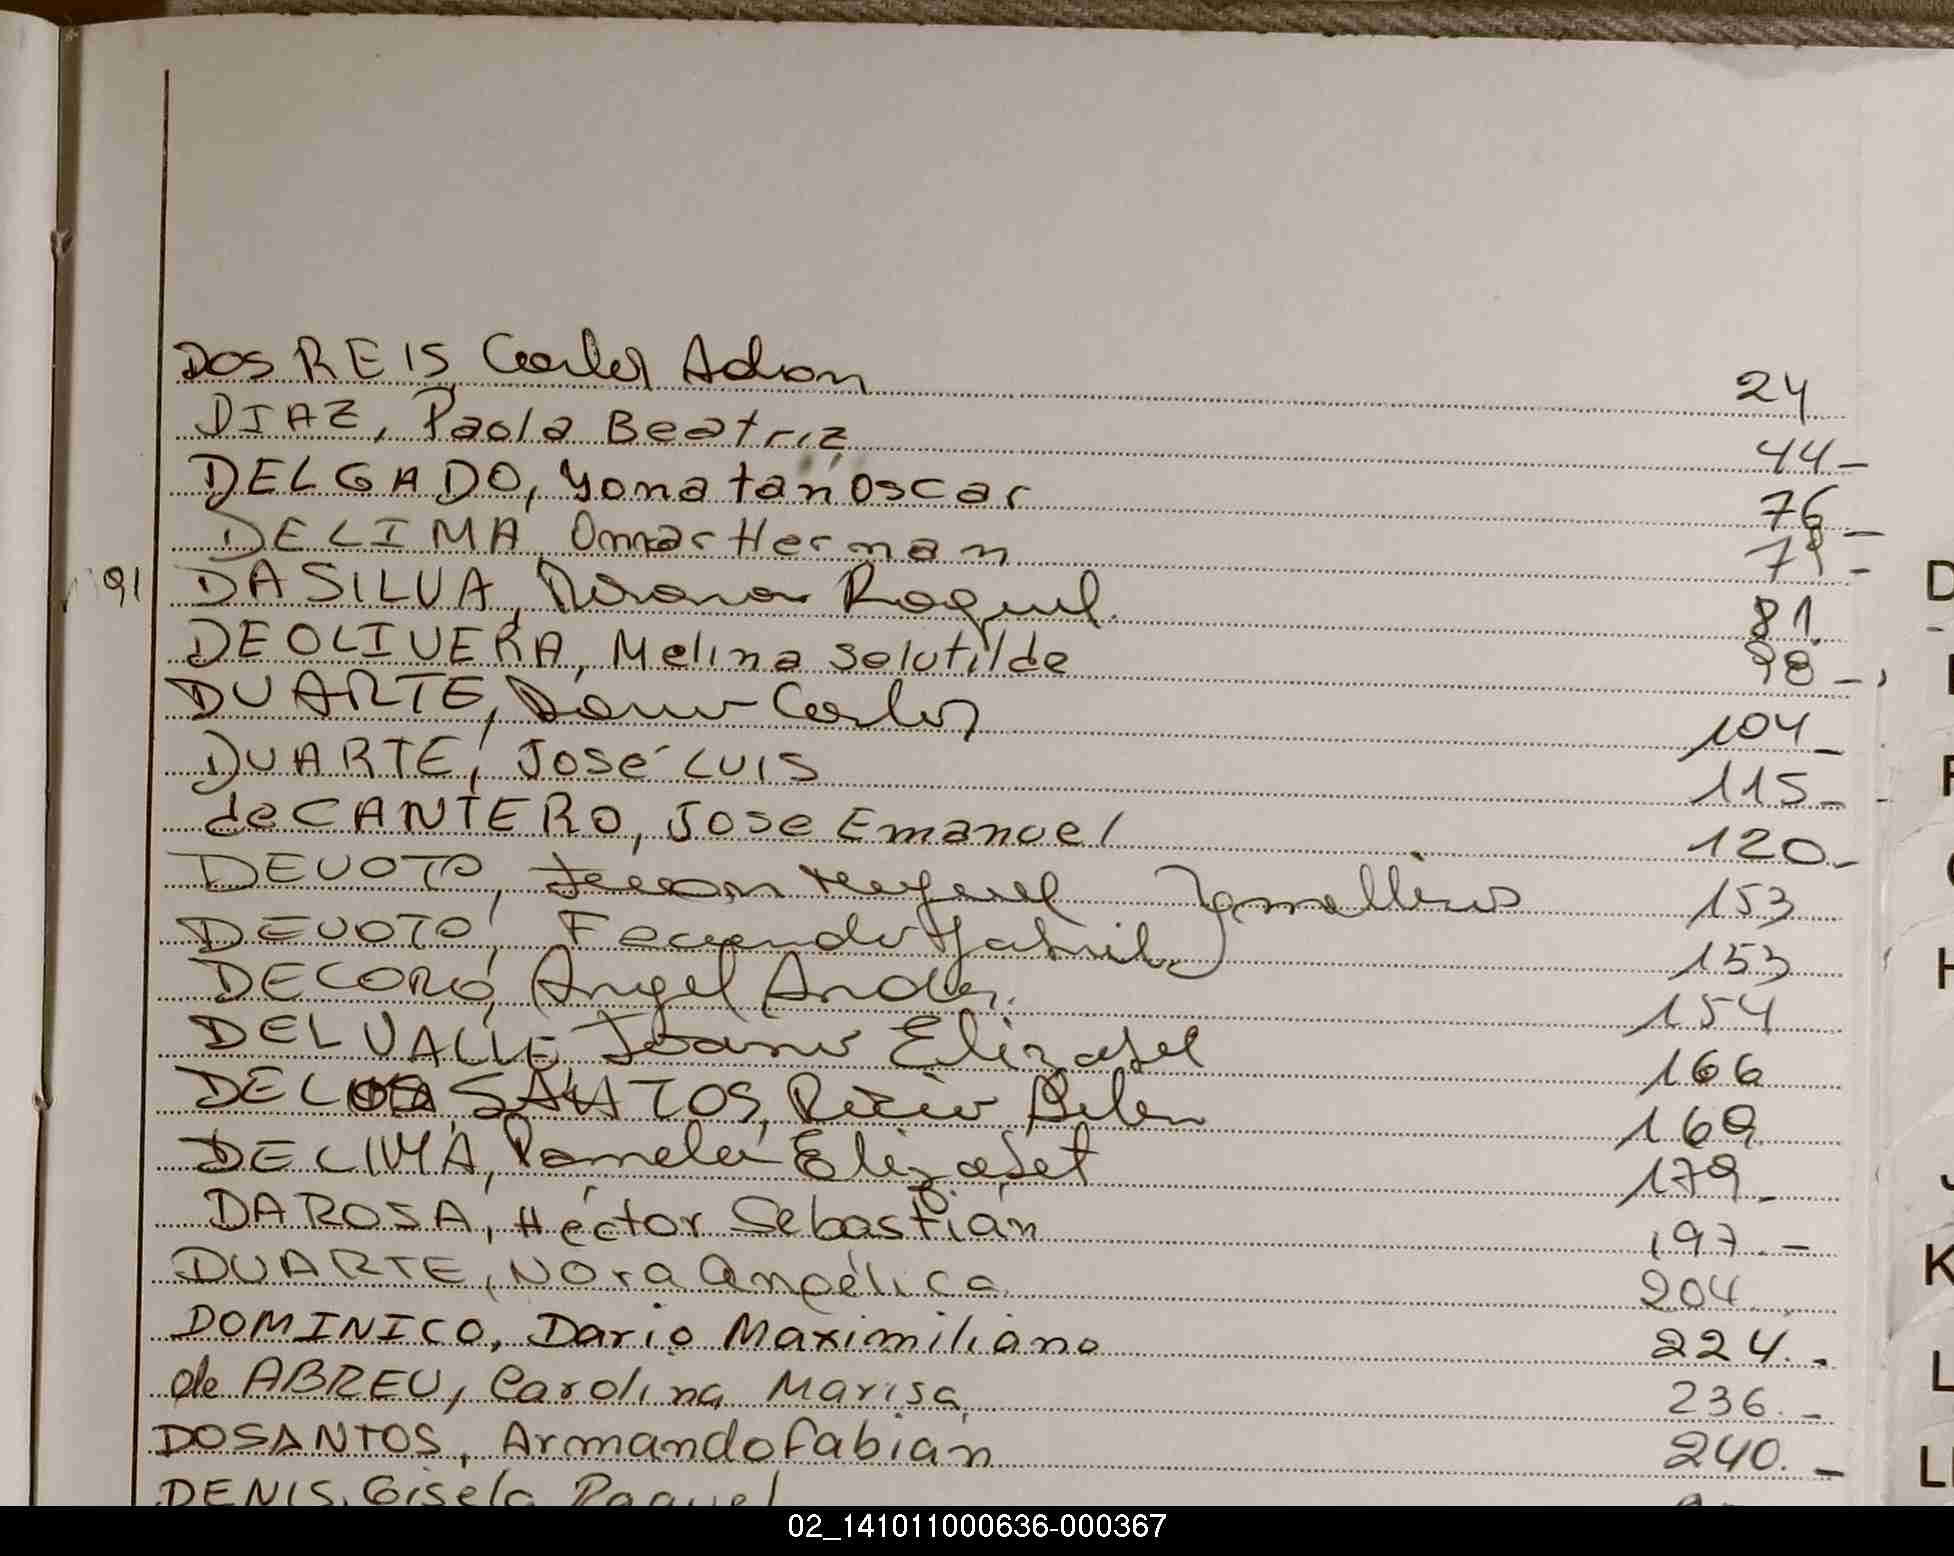 DOS REIS Carlos Adrian 24
DIAZ, Paola Beatriz 44-
DELGADO, Yonatan Oscar 76-
DELIMA Omar Hernan 79-
91 DASILVA, Rosana Raquel. 81
DEOLIVERA, Melina Solutilde 98-
DUARTE, Carlos 104-
DUARTE, José LUIS 115-
de CANTERO, Jose Emanuel 120-
DEVOTO, Miguel 153
DEVOTO, Facundo Gabriel 153
DECORO, Angel Andres. 154
DELVALLE Joana Elizabet 166
DELOS SANTOS, Rocio Belen 169
DELIMA, Pamela Elizabet 179-
DAROSA, Héctor Sebastián 197.-
DUARTE, Nora Angélica 204
DOMINICO, Dario Maximiliano 224.-
de ABREU, Carolina Marisa 236.-
DOSANTOS, Armando fabian 240.-
DENIS, Gisela Raquel
D
F
H
J
K
L
02_141011000636-000367